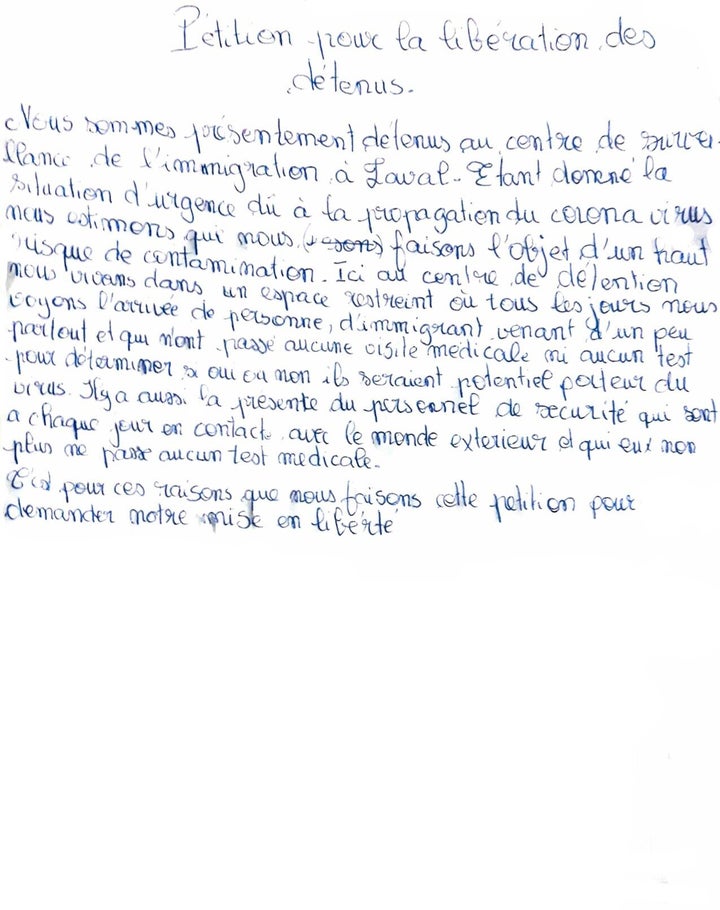 Pétition pour la libération des
détenus.
Nous sommes présentement détenus au centre de survei-
llance de l'immigration à Laval. Etant donené la
situation d'urgence dû à la propagation du corona virus
nous estimons qui nous (sons) faisons l'objet d'un haut
risque de contamination. Ici au centre de détention
nous vivons dans un espace restreint où tous les jours nous
voyons l'arrivée de personne, d'immigrant venant d'un peu
partout et qui n'ont passé aucune visite medicale ni aucun test
pour déterminer si oui ou non ils seraient potentiel porteur du
virus. Il y a aussi la presente du personnel de securité qui sont
a chaque jour en contact avec le monde exterieur et qui eux non
plus ne passe aucun test medicale.
C'est pour ces raisons que nous faisons cette petition pour
demander notre mise en liberté